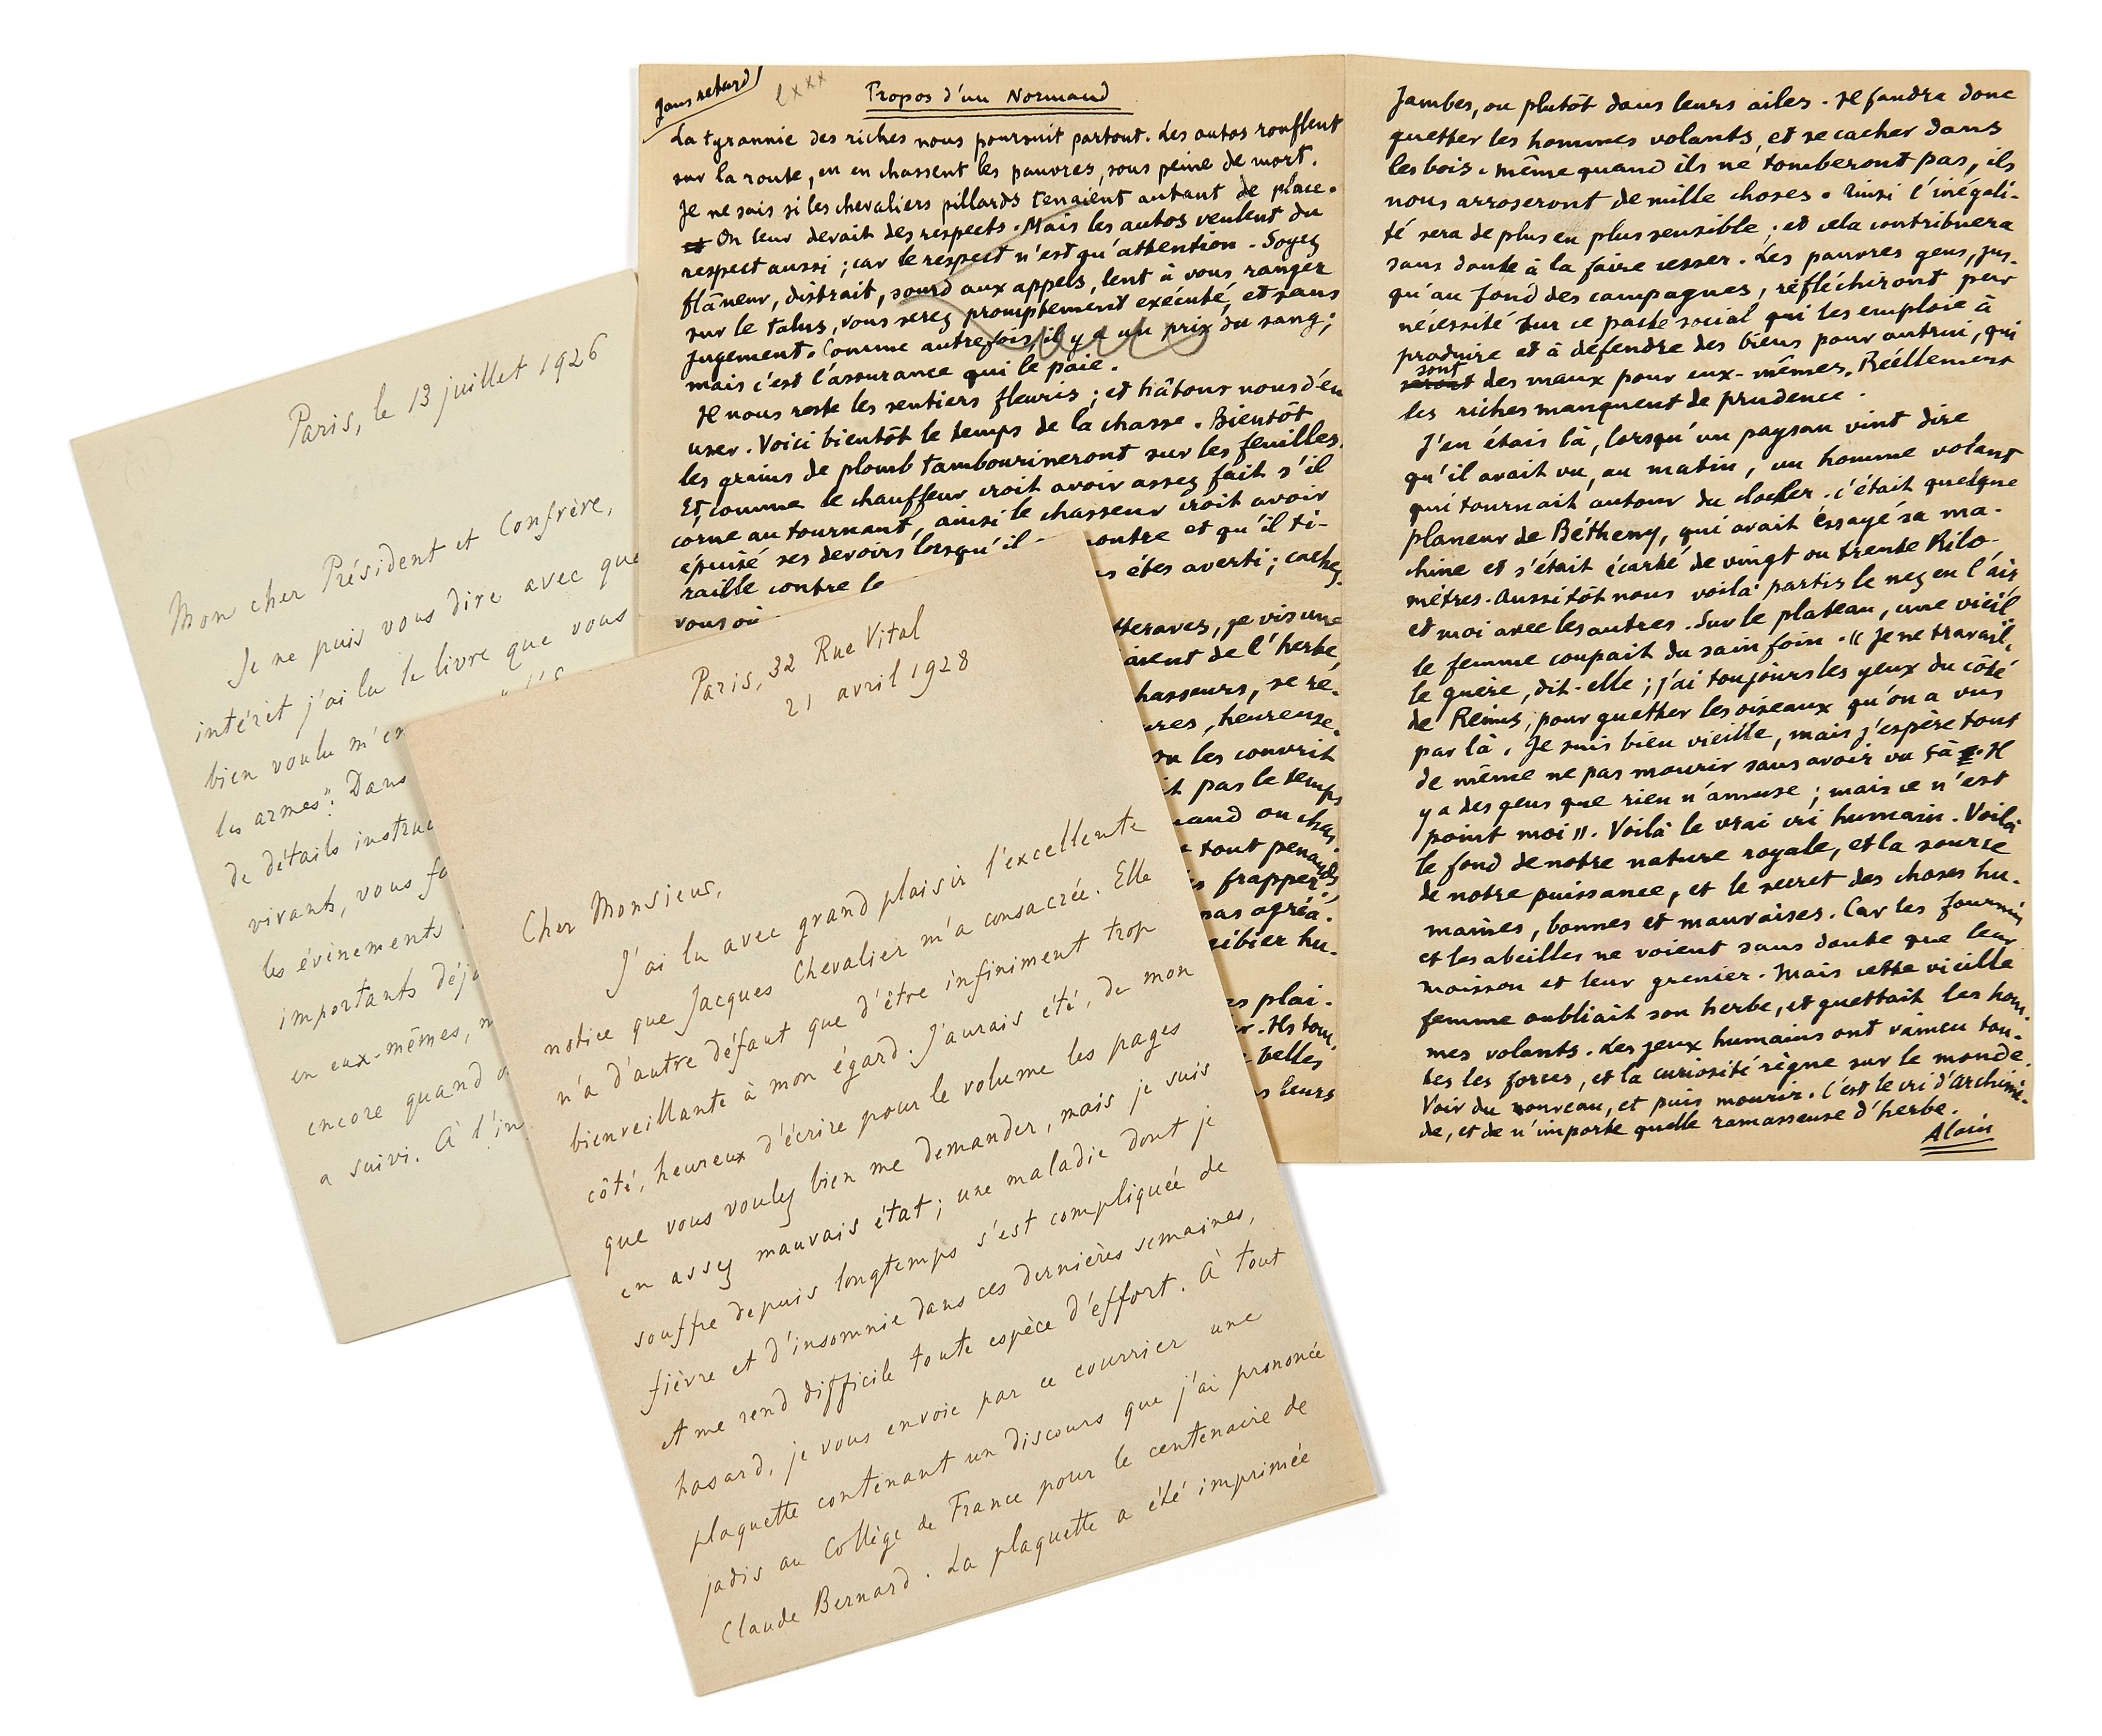 Paris, le 13 juillet 1926
Mon cher Président et Confrère,
Je ne puis vous dire avec que
intérêt j'ai lu le livre que vous
bien voulu m'en
les armes". Dans
de détails instruc
vivants, vous fa
les événements
importants déjà
en eux-mêmes,
encore quand
a suivi. À l'in
sans retard
Propos d'un Normand
La tyrannie des riches nous poursuit partout. Les autos ronflent
sur la route, en en chassent les pauvres, sous peine de mort.
Je ne sais si les chevaliers pillards tenaient autant de place.
On leur devait des respects. Mais les autos veulent du
respect aussi ; car le respect n'est qu'attention. Soyez
flâneur, distrait, sourd aux appels, lent à vous ranger
sur le talus, vous serez promptement exécuté, et sans
jugement. Comme autrefois, il y a un prix du sang ;
mais c'est l'assurance qui le paie.
Il nous reste les sentiers fleuris ; et hâtons nous d'en
user. Voici bientôt le temps de la chasse. Bientôt
les grains de plomb tambourineront sur les feuilles.
Et, comme le chauffeur croit avoir assez fait s'il
corne au tournant, ainsi le chasseur croit avoir
épuisé ses devoirs lorsqu'il ontre et qu'il ti-
raille contre le s êtes averti ; cachez
vous où
tteraves, je vis une
aient de l'herbe,
hasseurs, se re-
ures, heureuse-
les couvrit
t pas le temps
uand on chas-
tout penauds
s frapper !
pas agréa-
gibier hu-
es plai-
r. Ils tom-
belles
s leurs
Jambes, ou plutôt dans leurs ailes. Il faudra donc
guetter les hommes volants, et se cacher dans
les bois. même quand ils ne tomberont pas, ils
nous arroseront de mille choses. Ainsi l'inégali-
té sera de plus en plus sensible ; et cela contribuera
sans doute à la faire cesser. Les pauvres gens, jus-
qu'au fond des campagnes, réfléchiront par
nécessité sur ce pacte social qui les emploie à
produire et à défendre des biens pour autrui, qui
sont
seront des maux pour eux-mêmes. Réellement
les riches manquent de prudence.
J'en étais là, lorsqu'un paysan vint dire
qu'il avait vu, au matin, un homme volant
qui tournait autour du clocher. c'était quelque
planeur de Bétheny, qui avait éssayé sa ma-
chine et s'était écarté de vingt ou trente Kilo-
mètres. Aussitôt nous voilà partis le nez en l'air,
et moi avec les autres. Sur le plateau, une vieil-
le femme coupait du sain foin. « Je ne travail-
le guère, dit-elle ; j'ai toujours les yeux du côté
de Reims, pour guetter les oiseaux qu'on a vus
par là. Je suis bien vieille, mais j'espère tout
de même ne pas mourir sans avoir vu ça. Il
y a des gens que rien n'amuse ; mais ce n'est
point moi ». Voilà le vrai cri humain. Voilà
le fond de notre nature royale, et la source
de notre puissance, et le secret des choses hu-
maines, bonnes et mauvaises. Car les fourmis
et les abeilles ne voient sans doute que leur
moisson et leur grenier. Mais cette vieille
femme oubliait son herbe, et guettait les hom-
mes volants. Les jeux humains ont vaincu tou-
tes les forces, et la curiosité règne sur le monde.
Voir du nouveau, et puis mourir. C'est le cri d'Archimè-
de, et de n'importe quelle ramasseuse d'herbe.
Alain
Paris, 32 Rue Vital
21 avril 1928
Cher Monsieur,
J'ai lu avec grand plaisir l'excellente
notice que Jacques Chevalier m'a consacrée. Elle
n'a d'autre défaut que d'être infiniment trop
bienveillante à mon égard. J'aurais été, de mon
côté, heureux d'écrire pour le volume les pages
que vous voulez bien me demander, mais je suis
en assez mauvais état ; une maladie dont je
souffre depuis longtemps s'est compliquée de
fièvre et d'insomnie dans ces dernières semaines,
et me rend difficile toute espèce d'effort. À tout
hasard, je vous envoie par ce courrier une
plaquette contenant un discours que j'ai prononcé
jadis au Collège de France pour le centenaire de
Claude Bernard. La plaquette a été imprimée